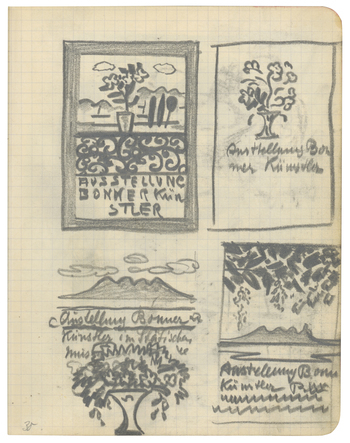 AUSSTELLUNG
BONNER Kün
STLER
Ausstellung Bon
ner Künstler
Ausstellung Bonner
Künstler im Städtischen
Ausstellung Bonn
Künstler